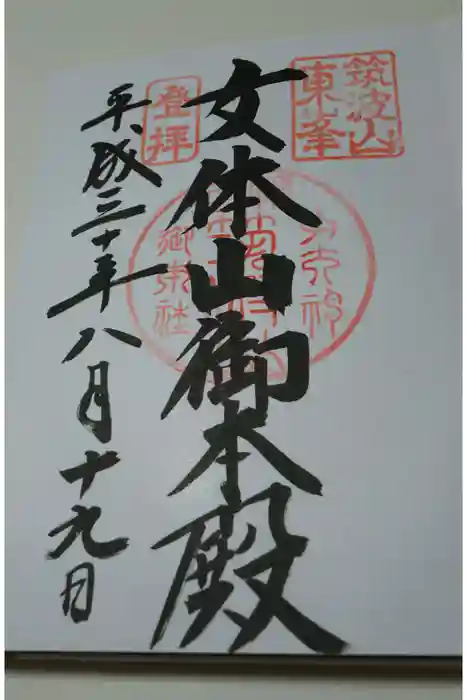 筑波山
東峯
女体山御本殿
登拝
平成三十年八月十九日